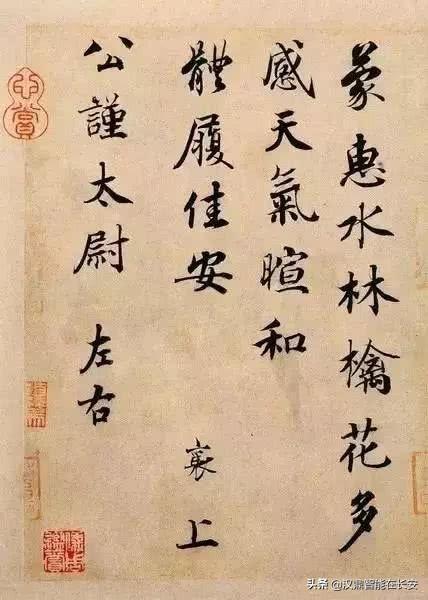 蒙惠水林檎花多
感天氣暄和
體履佳安
襄上
公謹太尉 左右
頭条 @汉鼎智能在长安